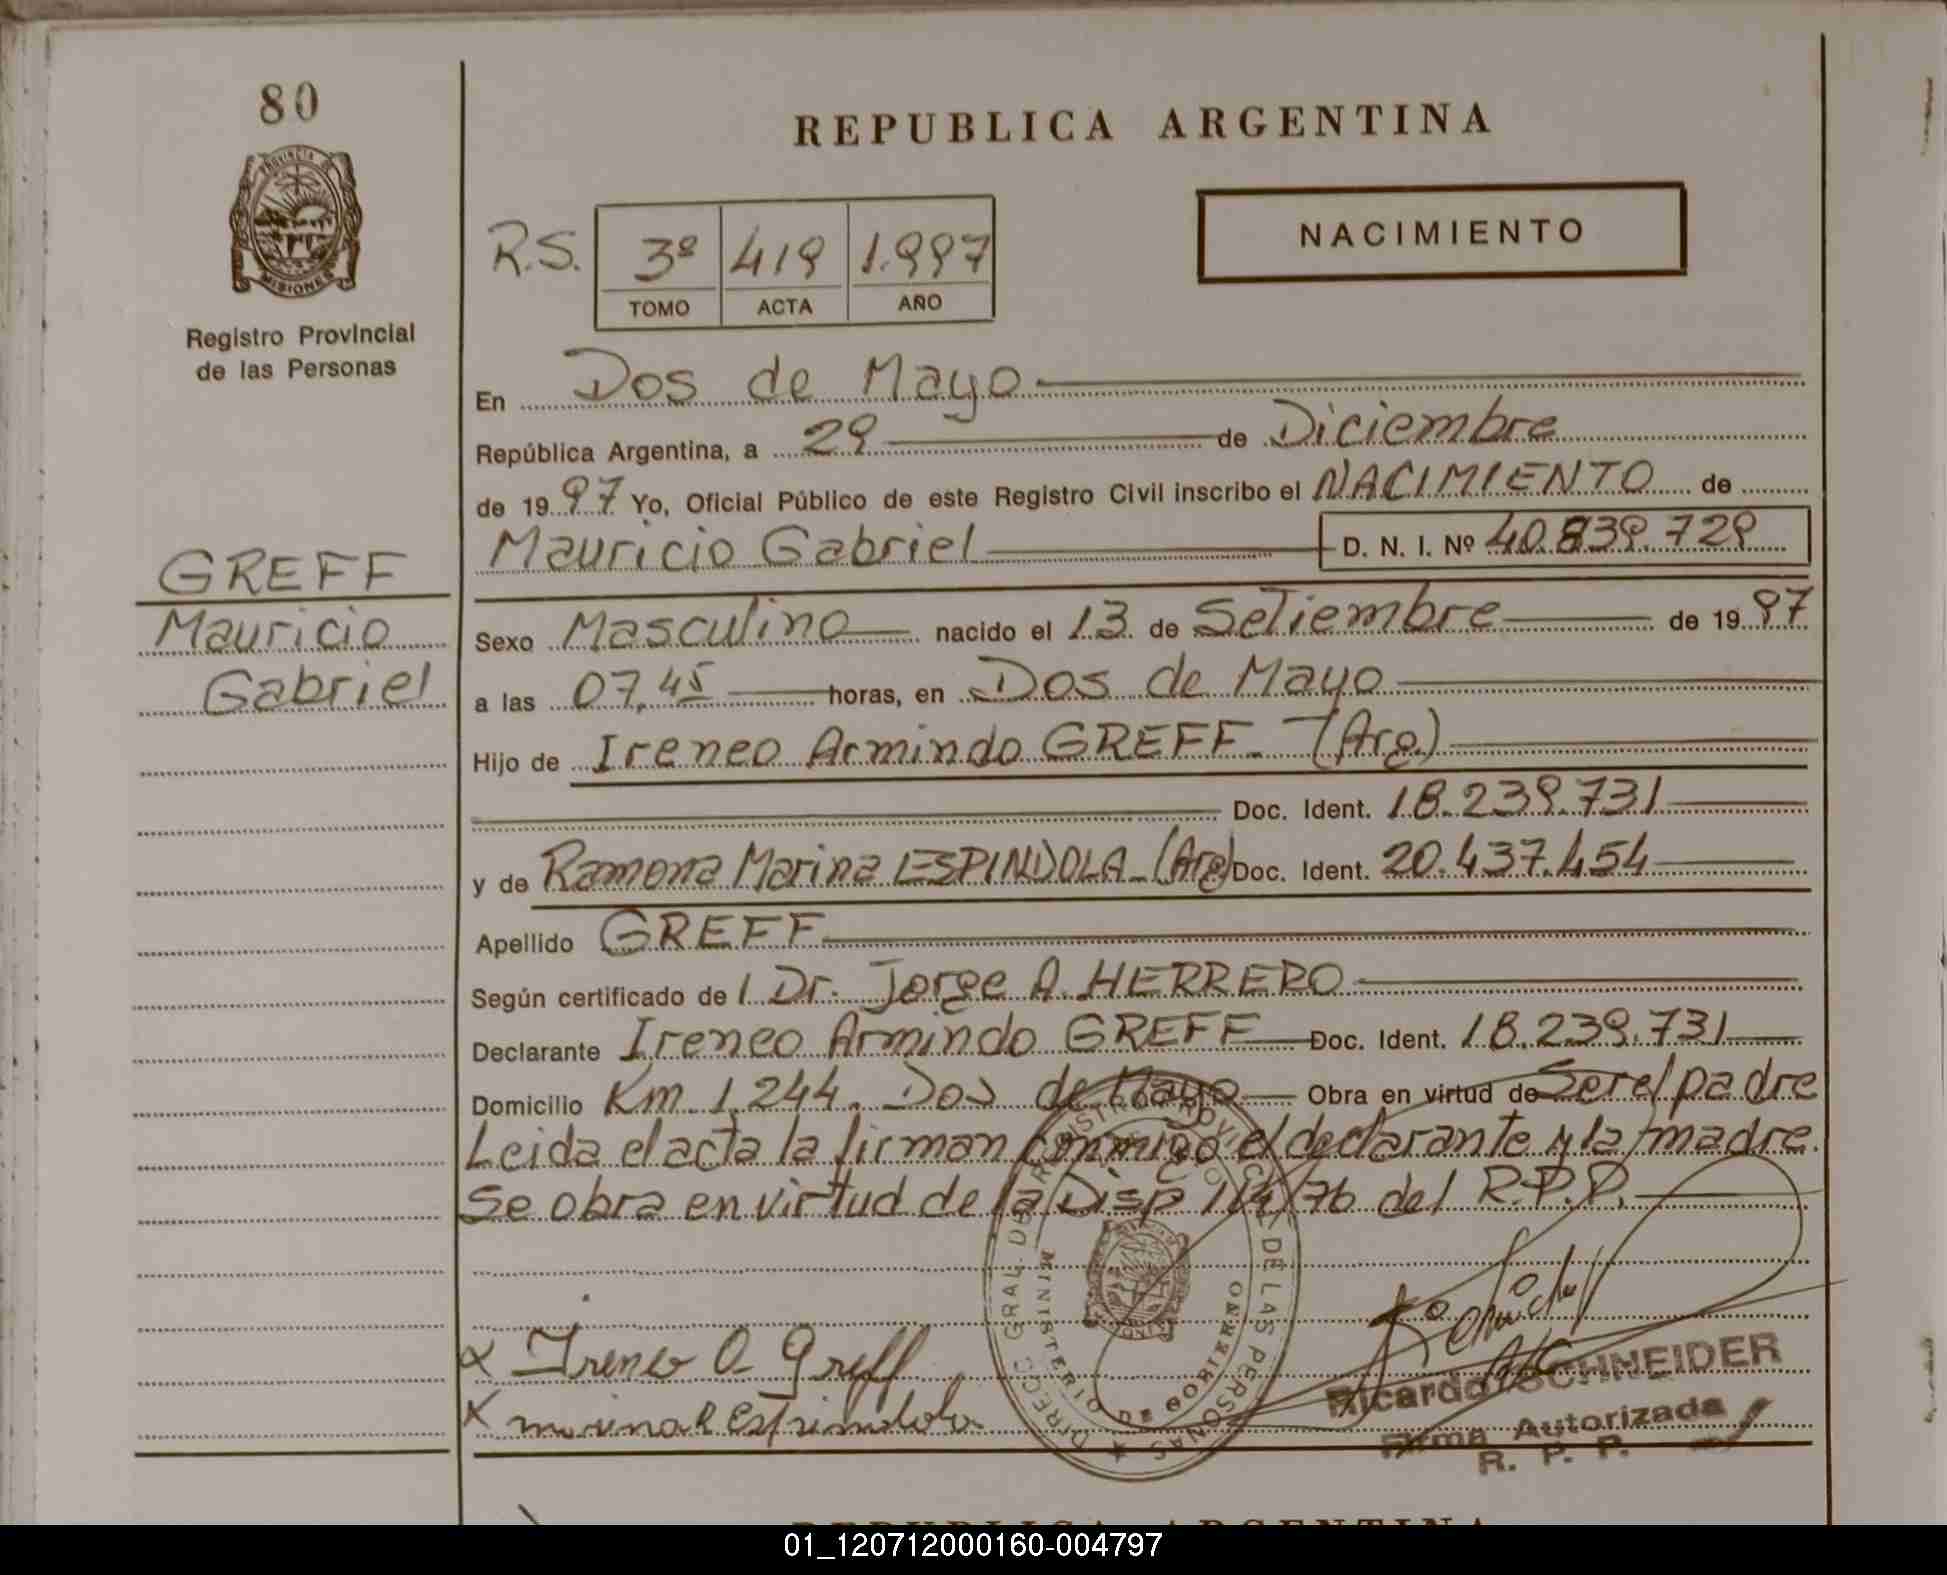 80
REPUBLICA ARGENTINA
PROVINCIA DE
MISIONES
Registro Provincial
de las Personas
R.S. 3º 419 1.997
TOMO ACTA AÑO
NACIMIENTO
En Dos de Mayo
República Argentina, a 29 de Diciembre
de 1997 Yo, Oficial Público de este Registro Civil inscribo el NACIMIENTO de
Mauricio Gabriel D. N. I. Nº 40.839.729
GREFF
Mauricio
Gabriel
Sexo Masculino nacido el 13 de Setiembre de 1997
a las 07,45 horas, en Dos de Mayo
Hijo de Ireneo Armindo GREFF - (Arg.)
Doc. Ident. 18.239.731
y de Ramona Marina ESPINDOLA - (Arg) Doc. Ident. 20.437.454
Apellido GREFF
Según certificado de l Dr. Jorge A. HERRERO
Declarante Ireneo Armindo GREFF Doc. Ident. 18.239.731
Domicilio Km 1.244. Dos de Mayo Obra en virtud de Ser el padre
Leida el acta la firman conmigo el declarante y la madre.
Se obra en virtud de la Disp 114/76 del R.P.P.
DIRECC GRAL DE REGISTRO PROVINCIAL DE LAS PERSONAS
MINISTERIO DE GOBIERNO
x Ireneo A Greff
x marina R Espindola
Ricardo SCHNEIDER
Firma Autorizada
R. P. P.
REPUBLICA ARGENTINA
01_120712000160-004797